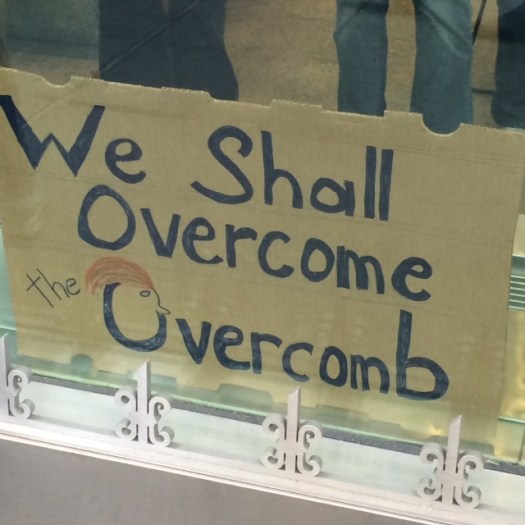 We Shall
Overcome
the Overcomb